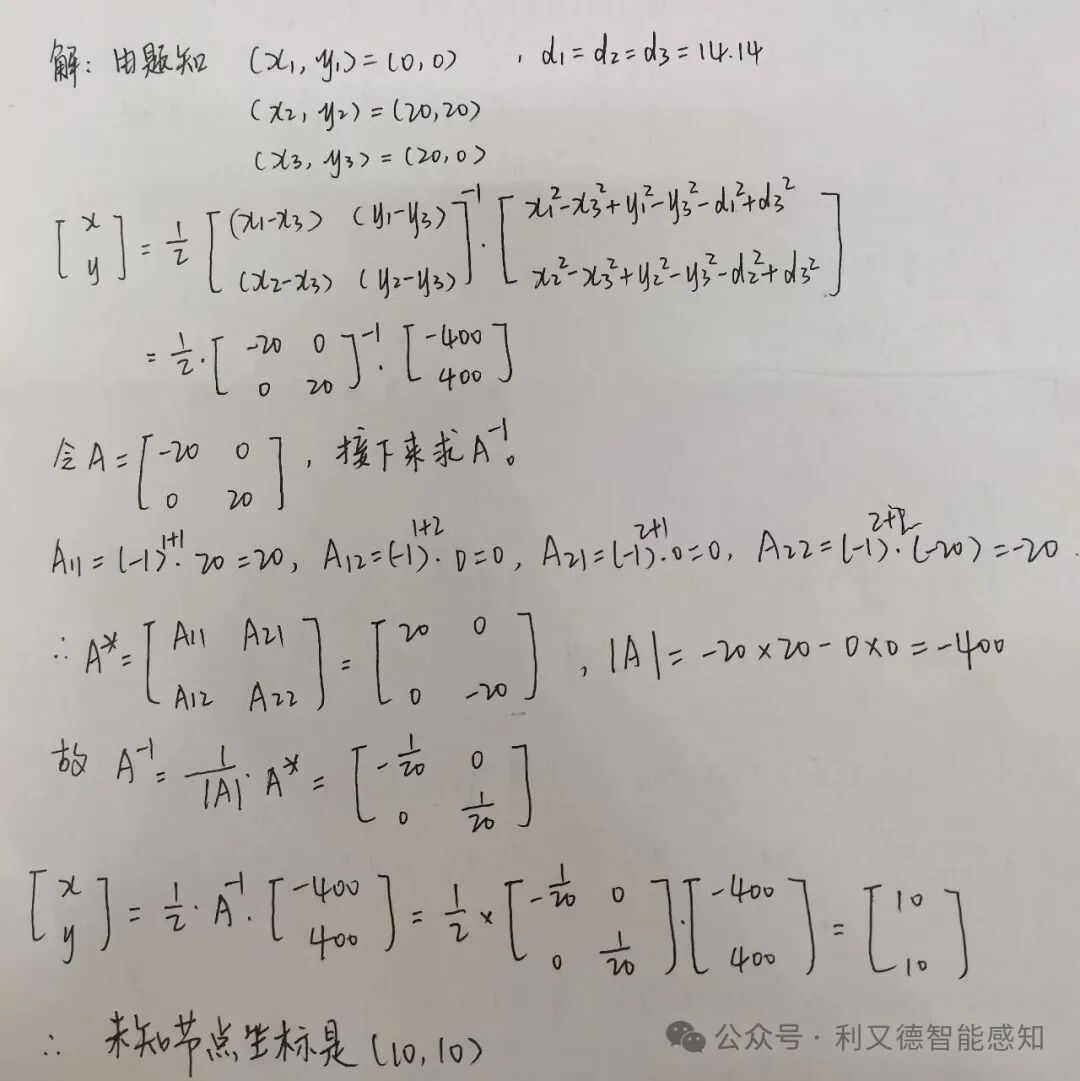 解：由题知 (x1, y1)=(0,0) , d1=d2=d3=14.14
(x2, y2)=(20,20)
(x3, y3)=(20,0)
[x y] = 1/2 [(x1-x3) (y1-y3) (x2-x3) (y2-y3)]^-1 · [x1²-x3²+y1²-y3²-d1²+d3² x2²-x3²+y2²-y3²-d2²+d3²]
= 1/2 · [-20 0 0 20]^-1 · [-400 400]
令A=[-20 0 0 20], 接下来求A^-1。
A11=(-1)^1+1·20=20, A12=(-1)^1+2·0=0, A21=(-1)^2+1·0=0, A22=(-1)^2+2·(-20)=-20.
∴A*=[A11 A21 A12 A22]=[20 0 0 -20], |A|=-20×20-0×0=-400
故 A^-1=1/|A|·A*=[-1/20 0 0 1/20]
[x y]=1/2·A^-1·[-400 400]=1/2×[-1/20 0 0 1/20]·[-400 400]=[10 10]
∴ 未知节点坐标是(10,10)
公众号·利又德智能感知